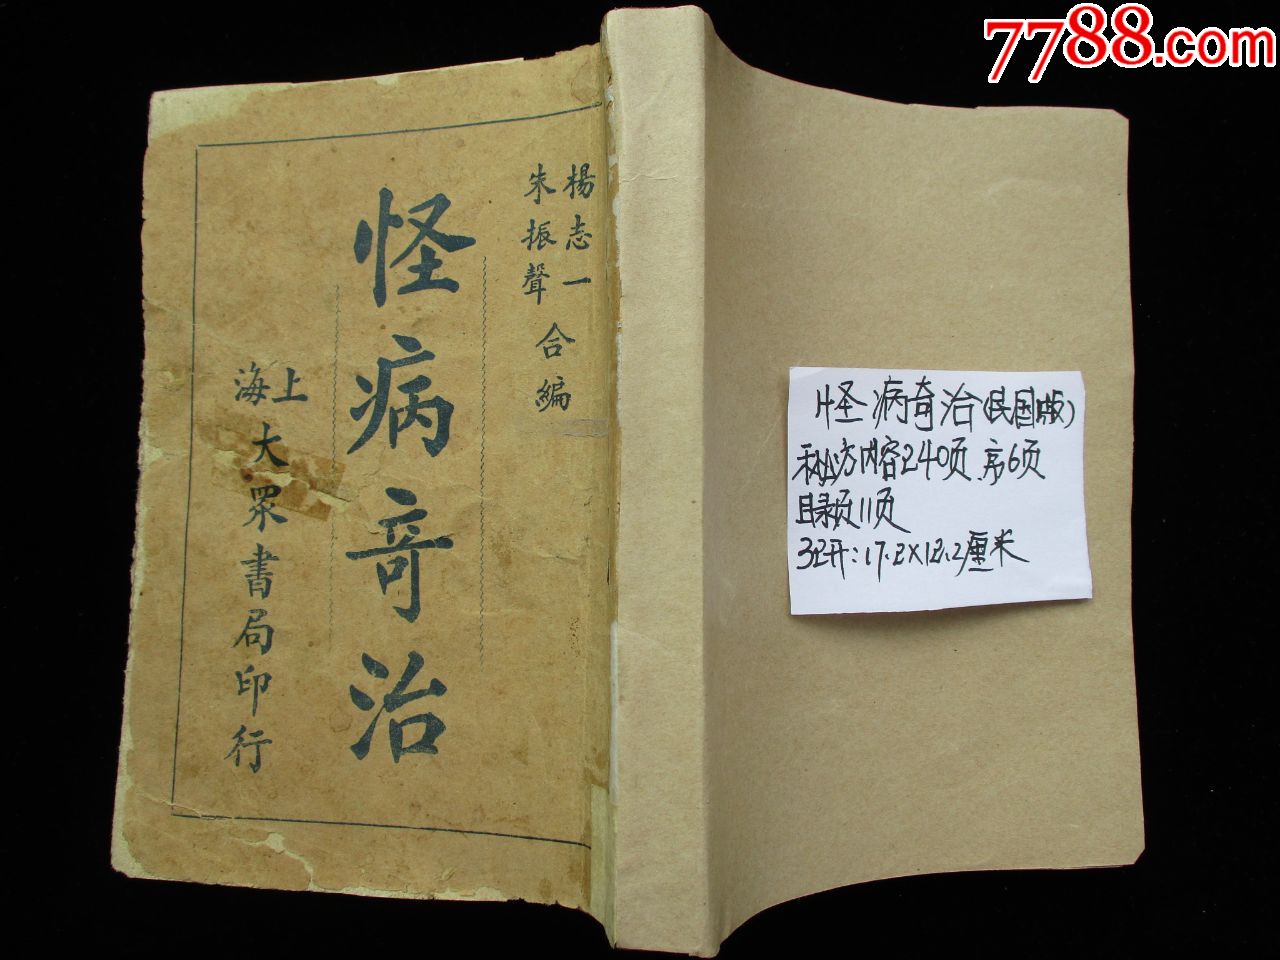 7788.com
楊志一
朱振聲
合編
怪病奇治
上海
大眾書局印行
怪病奇治(民国版)
秘方内容240页.序6页
目录页11页
32开:17.2×12.2厘米